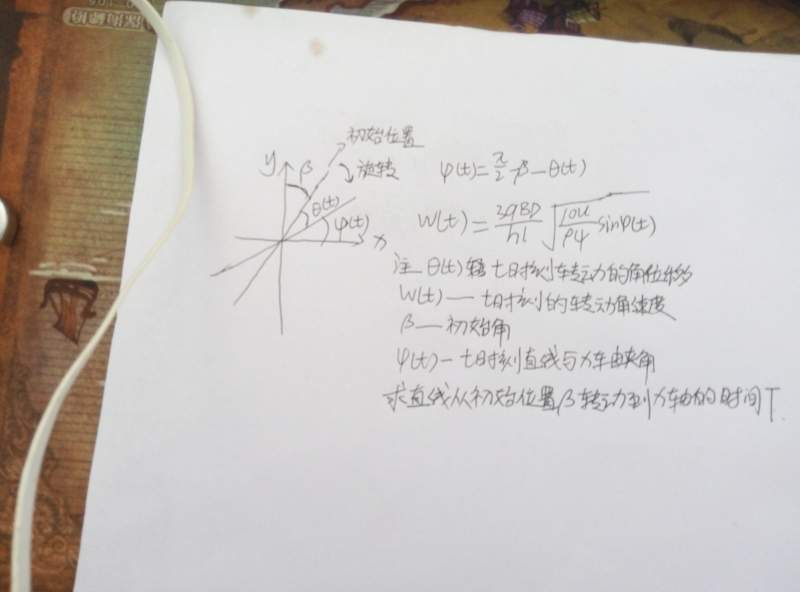 初始位置
y
β
旋转
θ(t)
φ(t)
x
φ(t)=π/2-β-θ(t)
W(t)=3qBD/hl √(10u/ρψ sinφ(t))
注 θ(t) t时刻转动的角位移
W(t)—t时刻的转动角速度
β—初始角
φ(t)—t时刻直线与x轴由夹角
求直线从初始位置β转动到x轴的时间T.